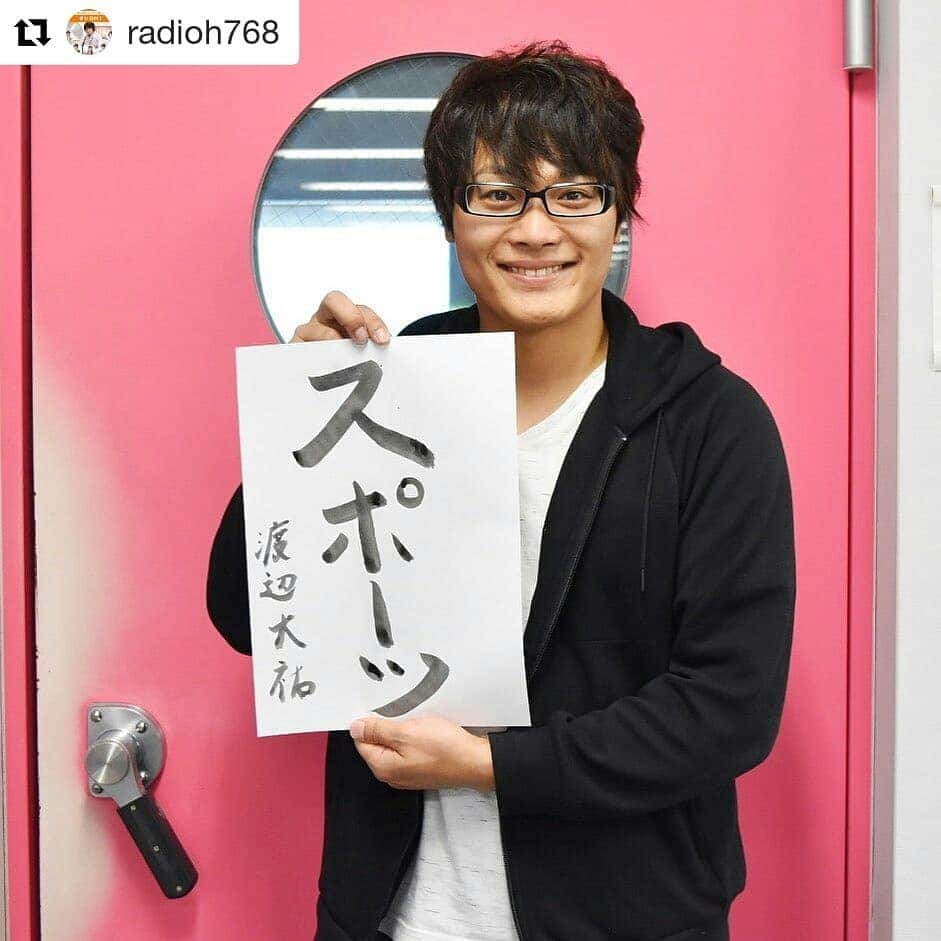 radioh768
スポーツ
渡辺大祐